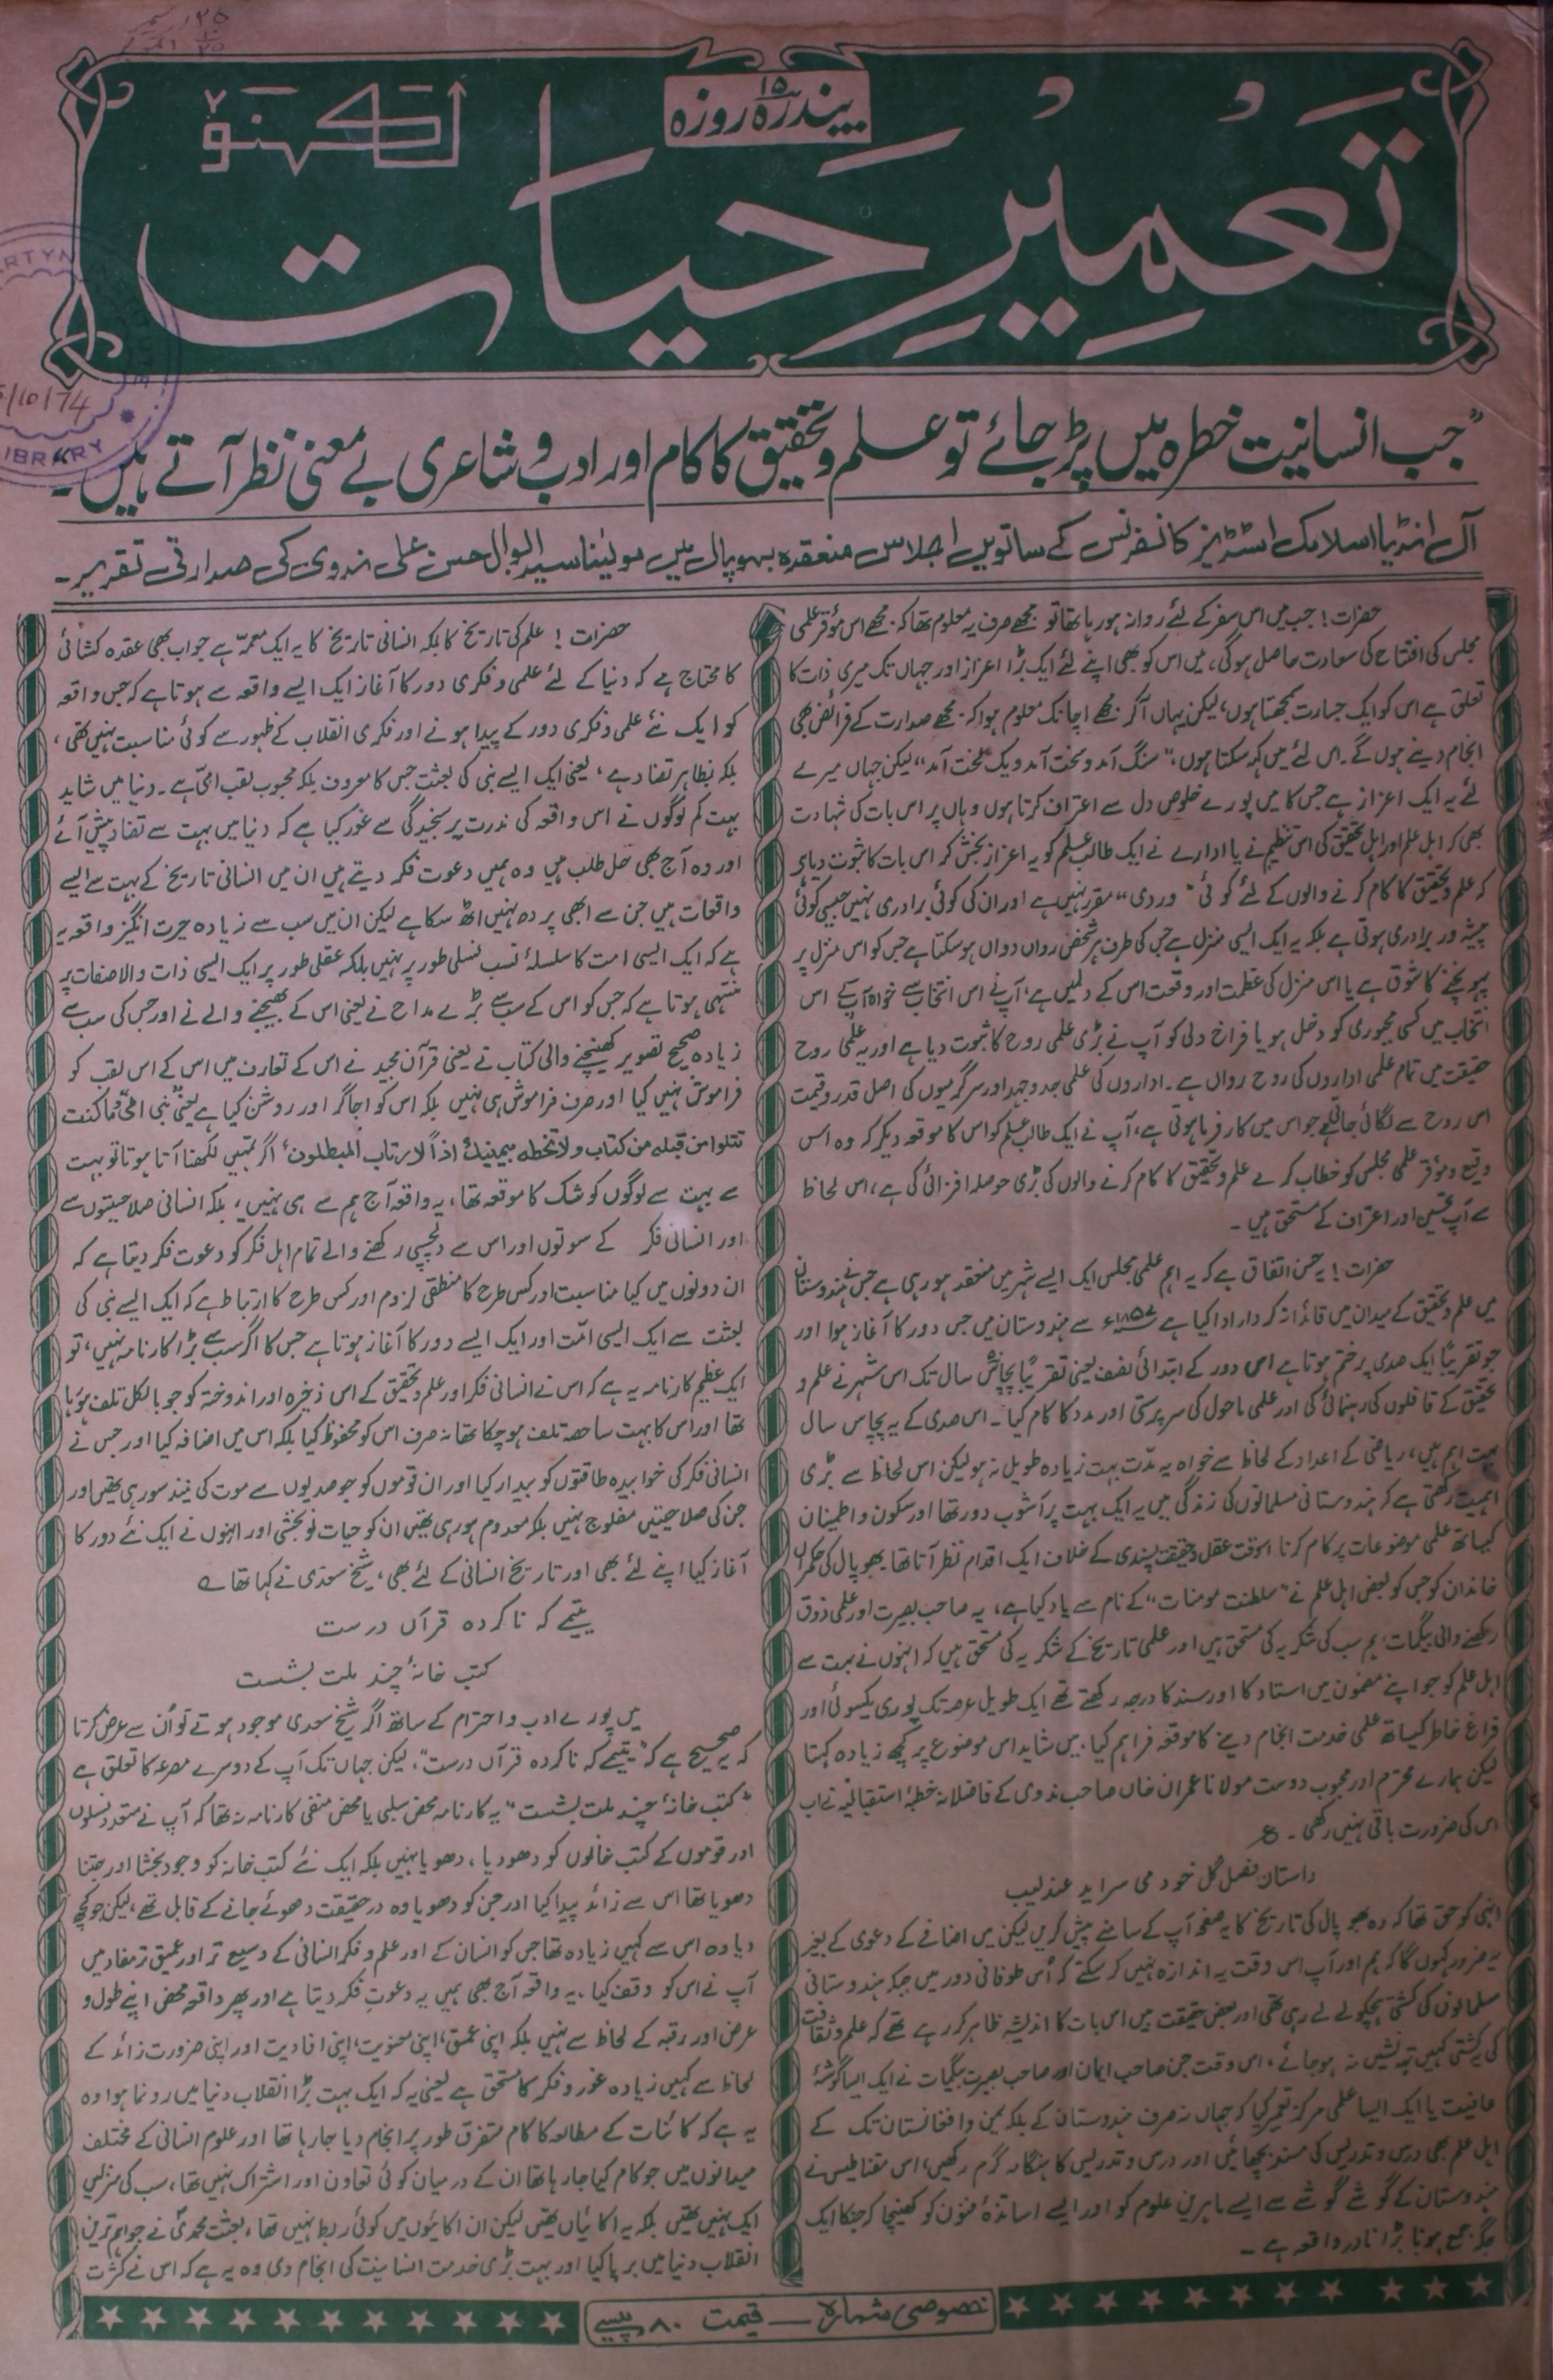 پندرہ ۱۵ روزہ
لکھنؤ
تعمیرِ حیات
"جب انسانیت خطرہ میں پڑ جائے تو علم و تحقیق کا کام اور ادب و شاعری بے معنی نظر آتے ہیں۔"
آل انڈیا اسلامک اسٹڈیز کانفرنس کے ساتویں اجلاس منعقدہ بھوپال میں مولینا سید ابوالحسن علی ندوی کی صدارتی تقریر۔
حضرات! جب میں اس سفر کے لئے روانہ ہو رہا تھا تو مجھے صرف یہ معلوم تھا کہ مجھے اس مؤقر علمی
مجلس کی افتتاح کی سعادت حاصل ہوگی، میں اس کو بھی اپنے لئے ایک بڑا اعزاز اور جہاں تک میری ذات کا
تعلق ہے اس کو ایک جسارت سمجھتا ہوں، لیکن یہاں آکر مجھے اچانک معلوم ہوا کہ مجھے صدارت کے فرائض بھی
انجام دینے ہوں گے۔ اس لئے میں کہہ سکتا ہوں، "سنگ آمد و سخت آمد و یک لخت آمد" لیکن جہاں میرے
لئے یہ ایک اعزاز ہے جس کا میں پورے خلوص دل سے اعتراف کرتا ہوں وہاں پر اس بات کی شہادت
بھی کہ اہل علم اور اہل تحقیق کی اس تنظیم نے یا ادارے نے ایک طالب علم کو یہ اعزاز بخش کر اس بات کا ثبوت دیا ہے
کہ علم و تحقیق کا کام کرنے والوں کے لئے کوئی "وردی" مقرر نہیں ہے اور ان کی کوئی برادری نہیں جیسی کوئی
پیشہ ور برادری ہوتی ہے بلکہ یہ ایک ایسی منزل ہے جس کی طرف ہر شخص رواں دواں ہو سکتا ہے جس کو اس منزل پر
پہونچنے کا شوق ہے یا اس منزل کی عظمت اور وقعت اس کے دل میں ہے، آپ نے اس انتخاب سے خواہ آپ کے اس
انتخاب میں کسی مجبوری کو دخل ہو یا فراخ دلی کو آپ نے بڑی علمی روح کا ثبوت دیا ہے اور یہ علمی روح
حقیقت میں تمام علمی اداروں کی روح رواں ہے۔ اداروں کی علمی جدوجہد اور سرگرمیوں کی اصل قدر و قیمت
اس روح سے لگائی جاتی ہے جو اس میں کار فرما ہوتی ہے، آپ نے ایک طالب علم کو اس کا موقعہ دیکر کہ وہ اس
وقیع و مؤقر علمی مجلس کو خطاب کرے علم و تحقیق کا کام کرنے والوں کی بڑی حوصلہ افزائی کی ہے، اس لحاظ
سے آپ تحسین اور اعتراف کے مستحق ہیں۔
حضرات! یہ حسن اتفاق ہے کہ یہ اہم علمی مجلس ایک ایسے شہر میں منعقد ہو رہی ہے جس نے ہندوستان
میں علم و تحقیق کے میدان میں قائدانہ کردار ادا کیا ہے ۱۸۵۷ء سے ہندوستان میں جس دور کا آغاز ہوا اور
جو تقریباً ایک صدی پر ختم ہوتا ہے اس دور کے ابتدائی نصف یعنی تقریباً پچاس سال تک اس شہر نے علم و
تحقیق کے قافلوں کی رہنمائی کی اور علمی ماحول کی سرپرستی اور مدد کا کام کیا۔ اس صدی کے یہ پچاس سال
بہت اہم ہیں، ریاضی کے اعداد کے لحاظ سے خواہ یہ مدّت بہت زیادہ طویل نہ ہو لیکن اس لحاظ سے بڑی
اہمیت رکھتی ہے کہ ہندوستانی مسلمانوں کی زندگی میں یہ ایک بہت پر آشوب دور تھا اور سکون و اطمینان
کیساتھ علمی موضوعات پر کام کرنا اسوقت عقل و حقیقت پسندی کے خلاف ایک اقدام نظر آتا تھا بھوپال کی حکمراں
خاندان کو جس کو بعض اہل علم نے "سلطنت مومنات" کے نام سے یاد کیا ہے، یہ صاحب بصیرت اور علمی ذوق
رکھنے والی بیگمات ہم سب کی شکریہ کی مستحق ہیں اور علمی تاریخ کے شکریہ کی مستحق ہیں کہ انہوں نے بہت سے
اہل علم کو جو اپنے مضمون میں استاد کا اور سند کا درجہ رکھتے تھے ایک طویل عرصہ تک پوری یکسوئی اور
فراغ خاطر کیساتھ علمی خدمت انجام دینے کا موقعہ فراہم کیا۔ میں شاید اس موضوع پر کچھ زیادہ کہتا
لیکن ہمارے محترم اور محبوب دوست مولانا عمران خاں صاحب ندوی کے فاضلانہ خطبۂ استقبالیہ نے اب
اس کی ضرورت باقی نہیں رکھی۔ ع
داستان فصل گل خود می سراید عندلیب
انہی کو حق تھا کہ وہ بھوپال کی تاریخ کا یہ صفحہ آپ کے سامنے پیش کریں لیکن میں اضافے کے دعوی کے بغیر
یہ ضرور کہوں گا کہ ہم اور آپ اس وقت یہ اندازہ نہیں کر سکتے کہ اُس طوفانی دور میں جبکہ ہندوستانی
مسلمانوں کی کشتی ہچکولے لے رہی تھی اور بعض حقیقت میں اس بات کا اندیشہ ظاہر کر رہے تھے کہ علم و ثقافت
کی یہ کشتی کہیں تہ نشیں نہ ہو جائے، اس وقت جن صاحب ایمان اور صاحب بصیرت بیگمات نے ایک ایسا گوشۂ
عافیت یا ایک ایسا علمی مرکز تعمیر کیا کہ جہاں نہ صرف ہندوستان کے بلکہ یمن و افغانستان تک کے
اہل علم بھی درس و تدریس کی مسند بچھائیں اور درس و تدریس کا ہنگامہ گرم رکھیں، اس مقناطیس نے
ہندوستان کے گوشے گوشے سے ایسے ماہرین علوم کو اور ایسے اساتذۂ فنون کو کھینچا کہ جنکا ایک
جگہ جمع ہونا بڑا نادر واقعہ ہے۔
حضرات! علم کی تاریخ کا بلکہ انسانی تاریخ کا یہ ایک معمّہ ہے جو اب بھی عقدہ کشائی
کا محتاج ہے کہ دنیا کے لئے علمی و فکری دور کا آغاز ایک ایسے واقعہ سے ہوتا ہے کہ جس واقعہ
کو ایک نئے علمی و فکری دور کے پیدا ہونے اور فکری انقلاب کے ظہور سے کوئی مناسبت نہیں تھی،
بلکہ بظاہر تضاد ہے، یعنی ایک ایسے نبی کی بعثت جس کا معروف بلکہ محبوب لقب امّی ہے۔ دنیا میں شاید
بہت کم لوگوں نے اس واقعہ کی ندرت پر سنجیدگی سے غور کیا ہے کہ دنیا میں بہت سے تضاد پیش آئے
اور وہ آج بھی حل طلب ہیں وہ ہمیں دعوت فکر دیتے ہیں ان میں انسانی تاریخ کے بہت سے ایسے
واقعات ہیں جن سے ابھی پردہ نہیں اٹھ سکا ہے لیکن ان میں سب سے زیادہ حیرت انگیز واقعہ یہ
ہے کہ ایک ایسی امت کا سلسلۂ نسب نسلی طور پر نہیں بلکہ عقلی طور پر ایک ایسی ذات والا صفات پر
منتہی ہوتا ہے کہ جس کو اس کے سب سے بڑے مداح نے یعنی اس کے بھیجنے والے نے اور جس کی سب سے
زیادہ صحیح تصویر کھینچنے والی کتاب نے یعنی قرآن مجید نے اس کے تعارف میں اس کے اس لقب کو
فراموش نہیں کیا اور صرف فراموش ہی نہیں بلکہ اس کو اجاگر اور روشن کیا ہے یعنی نبی امی "وما کنت
تتلوا من قبلہ من کتاب ولا تخطہ بیمینک اذاً لارتاب المبطلون" اگر تمہیں لکھنا آتا ہوتا تو بہت
سے بہت سے لوگوں کو شک کا موقعہ تھا، یہ واقعہ آج ہم سے ہی نہیں، بلکہ انسانی صلاحیتوں سے
اور انسانی فکر کے سوتوں اور اس سے دلچسپی رکھنے والے تمام اہل فکر کو دعوت فکر دیتا ہے کہ
ان دونوں میں کیا مناسبت اور کس طرح کا منطقی لزوم اور کس طرح کا ارتباط ہے کہ ایک ایسے نبی کی
بعثت سے ایک ایسی امّت اور ایک ایسے دور کا آغاز ہوتا ہے جس کا اگر سب سے بڑا کارنامہ نہیں، تو
ایک عظیم کارنامہ یہ ہے کہ اس نے انسانی فکر اور علم و تحقیق کے اس ذخیرہ اور اندوختہ کو جو بالکل تلف ہو رہا
تھا اور اس کا بہت سا حصہ تلف ہو چکا تھا نہ صرف اس کو محفوظ کیا بلکہ اس میں اضافہ کیا اور جس نے
انسانی فکر کی خوابیدہ طاقتوں کو بیدار کیا اور ان قوموں کو جو صدیوں سے موت کی نیند سو رہی تھیں اور
جن کی صلاحیتیں مفلوج نہیں بلکہ معدوم ہو رہی تھیں ان کو حیات نو بخشی اور انہوں نے ایک نئے دور کا
آغاز کیا اپنے لئے بھی اور تاریخ انسانی کے لئے بھی، شیخ سعدی نے کہا تھا ؎
یتیمے کہ ناکردہ قرآں درست
کتب خانۂ چند ملت بشست
میں پورے ادب و احترام کے ساتھ اگر شیخ سعدی موجود ہوتے تو اُن سے عرض کرتا
کہ یہ صحیح ہے کہ "یتیمے کہ ناکردہ قرآں درست"، لیکن جہاں تک آپ کے دوسرے مصرعہ کا تعلق ہے
"کتب خانۂ چند ملت بشست" یہ کارنامہ محض سلبی یا محض منفی کارنامہ نہ تھا کہ آپ نے متعدد نسلوں
اور قوموں کے کتب خانوں کو دھو دیا، دھویا نہیں بلکہ ایک نئے کتب خانہ کو وجود بخشا اور جتنا
دھویا تھا اس سے زائد پیدا کیا اور جن کو دھویا وہ درحقیقت دھوئے جانے کے قابل تھے، لیکن جو کچھ
دیا وہ اس سے کہیں زیادہ تھا جس کو انسان کے اور علم و فکر انسانی کے وسیع تر اور عمیق تر مفاد میں
آپ نے اس کو وقف کیا۔ یہ واقعہ آج بھی ہمیں یہ دعوتِ فکر دیتا ہے اور پھر واقعہ محض اپنے طول و
عرض اور رقبہ کے لحاظ سے نہیں بلکہ اپنی عمق، اپنی معنویت، اپنی افادیت اور اپنی ضرورت زائد کے
لحاظ سے کہیں زیادہ غور و فکر کا مستحق ہے یعنی یہ کہ ایک بہت بڑا انقلاب دنیا میں رونما ہوا وہ
یہ ہے کہ کائنات کے مطالعہ کا کام متفرق طور پر انجام دیا جا رہا تھا اور علوم انسانی کے مختلف
میدانوں میں جو کام کیا جا رہا تھا ان کے درمیان کوئی تعاون اور اشتراک نہیں تھا، سب کی منزلیں
ایک نہیں تھیں بلکہ یہ اکائیاں تھیں لیکن ان اکائیوں میں کوئی ربط نہیں تھا، بعثت محمدیؐ نے جو اہم ترین
انقلاب دنیا میں برپا کیا اور بہت بڑی خدمت انسانیت کی انجام دی وہ یہ ہے کہ اس نے کثرت
خصوصی شمارہ — قیمت ۸۰ پیسے
LIBRARY
/10/74